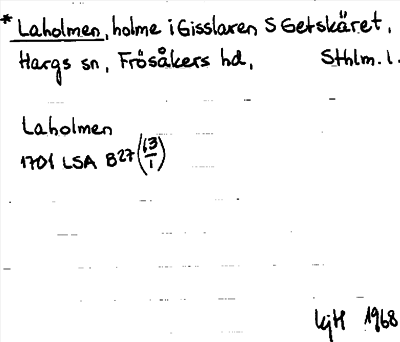 * Laholmen, holme i Gisslaren S Getskäret,
Hargs sn, Frösåkers hd, Sthlm. l.
Laholmen
1701 LSA B27 (63/1)
KjH 1968